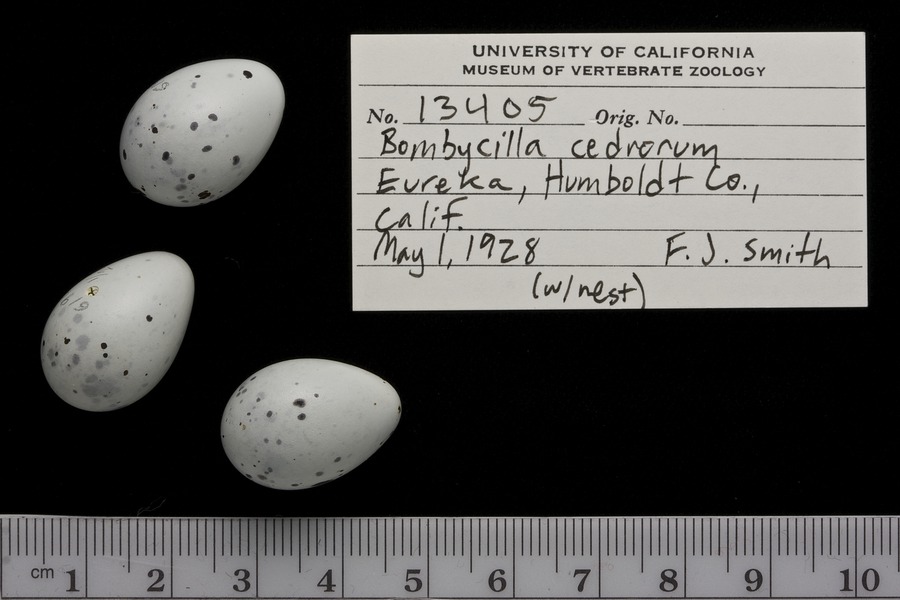 UNIVERSITY OF CALIFORNIA
MUSEUM OF VERTEBRATE ZOOLOGY
No. 13405 Orig. No.
Bombycilla cedrorum
Eureka, Humboldt Co.,
Calif.
May 1, 1928 F. J. Smith
(w/nest)
cm 1 2 3 4 5 6 7 8 9 10